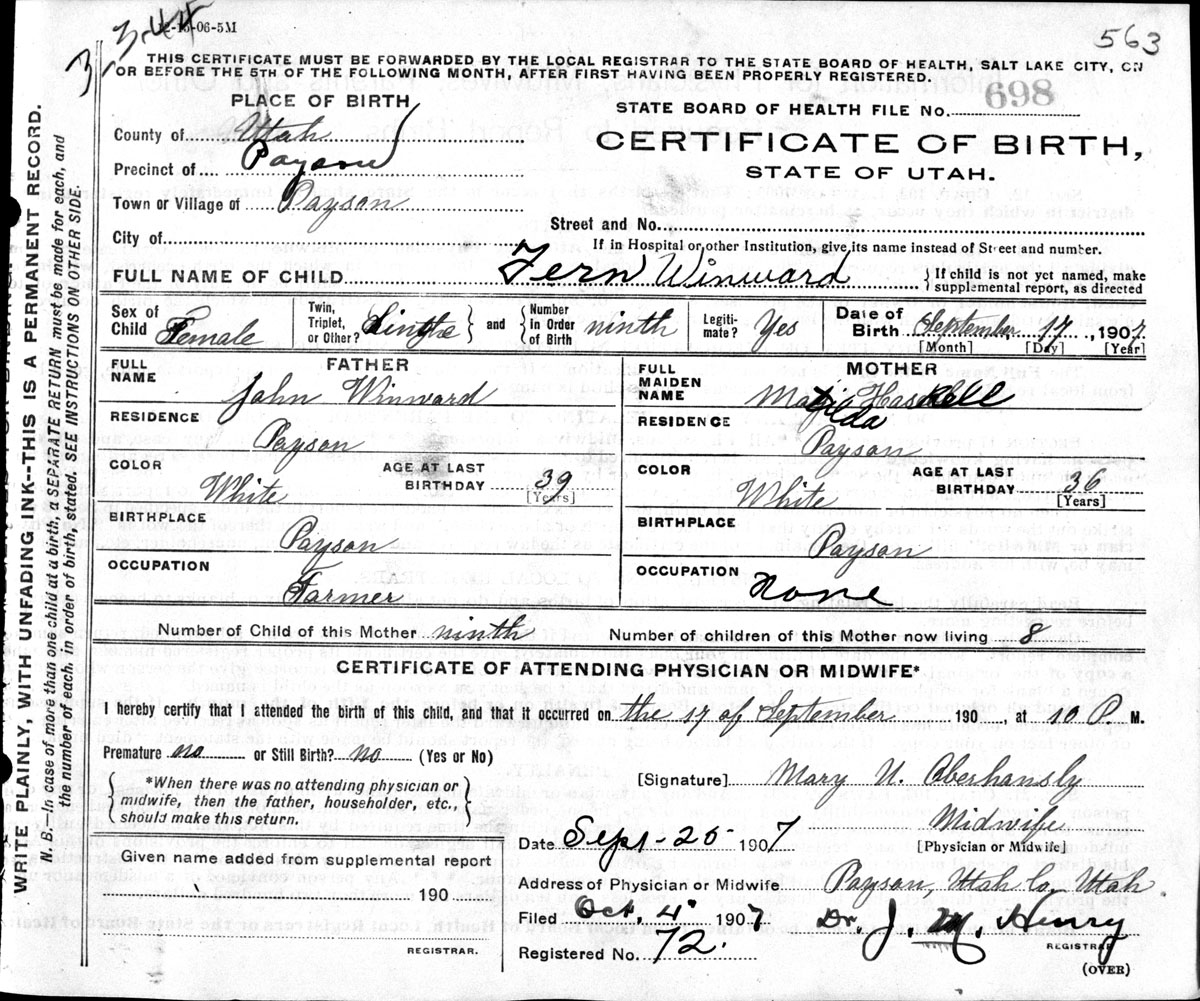 12-15-06-5M
3.44
3
563
THIS CERTIFICATE MUST BE FORWARDED BY THE LOCAL REGISTRAR TO THE STATE BOARD OF HEALTH, SALT LAKE CITY, ON
OR BEFORE THE 5TH OF THE FOLLOWING MONTH, AFTER FIRST HAVING BEEN PROPERLY REGISTERED.
PLACE OF BIRTH
STATE BOARD OF HEALTH FILE No. 698
County of Utah
CERTIFICATE OF BIRTH,
Precinct of Payson
STATE OF UTAH.
Town or Village of Payson
Street and No.
City of
If in Hospital or other Institution, give its name instead of Street and number.
FULL NAME OF CHILD Fern Winward
If child is not yet named, make
supplemental report, as directed
Sex of
Child Female
Twin,
Triplet,
or Other?
and
Number
in Order
of Birth ninth
Legiti-
mate? Yes
Date of
Birth September, 17, 1907.
[Month] [Day] [Year]
FATHER
FULL
NAME John Winward
RESIDENCE
Payson
COLOR
White
AGE AT LAST
BIRTHDAY 39
[Years]
BIRTHPLACE
Payson
OCCUPATION
Farmer
MOTHER
FULL
MAIDEN
NAME
RESIDENCE
Payson
COLOR
White
AGE AT LAST
BIRTHDAY 36
[Years]
BIRTHPLACE
Payson
OCCUPATION
None
Number of Child of this Mother ninth Number of children of this Mother now living 8
CERTIFICATE OF ATTENDING PHYSICIAN OR MIDWIFE*
I hereby certify that I attended the birth of this child, and that it occurred on the 17 of September 190 , at 10 P. M.
Premature no or Still Birth? no (Yes or No)
*When there was no attending physician or
midwife, then the father, householder, etc.,
should make this return.
[Signature] Mary U. Oberhansly
Midwife
[Physician or Midwife]
Date Sept-25- 1907
Given name added from supplemental report
190
REGISTRAR.
Address of Physician or Midwife Payson, Utah Co, Utah
Filed Oct, 4" 1907 Dr. J. M. Henry
REGISTRAR
Registered No. 72.
(OVER)
WRITE PLAINLY, WITH UNFADING INK--THIS IS A PERMANENT RECORD.
N. B.—In case of more than one child at a birth, a SEPARATE RETURN must be made for each, and
the number of each, in order of birth, stated. SEE INSTRUCTIONS ON OTHER SIDE.